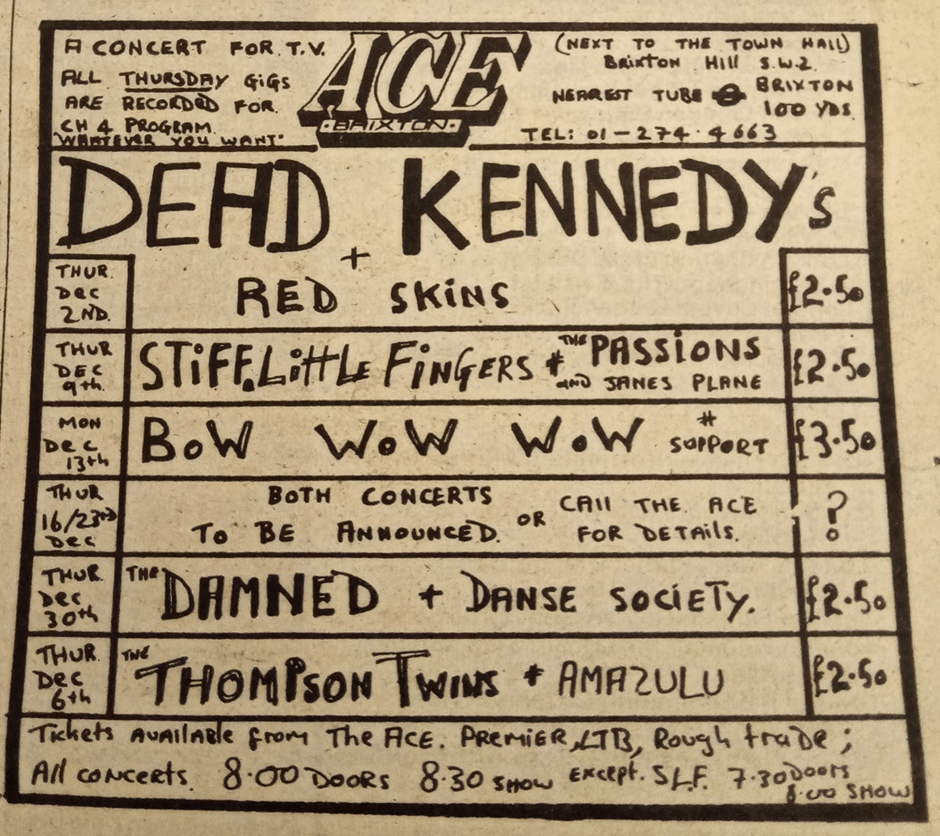 A CONCERT FOR T.V.
ALL THURSDAY GIGS
ARE RECORDED FOR
CH 4 PROGRAM.
"WHATEVER YOU WANT"
ACE
·BRIXTON·
(NEXT TO THE TOWN HALL)
BRIXTON HILL S.W.2.
NEAREST TUBE BRIXTON
100 YDS.
TEL: 01-274·4663
DEAD KENNEDY's
+
THUR.
DEC
2ND.
RED SKINS
£2·50
THUR
DEC
9th.
STIFF LITTLE FINGERS + THE PASSIONS
AND JANES PLANE
£2·50
MON
DEC
13th
BOW WOW WOW + SUPPORT
£3·50
THUR
16/23rd
DEC
BOTH CONCERTS
TO BE ANNOUNCED. OR CALL THE ACE
FOR DETAILS.
?
THUR.
DEC
30th
THE DAMNED + DANSE SOCIETY.
£2·50
THUR.
DEC
6th
THE THOMPSON TWINS + AMAZULU
£2·50
Tickets AVAILABLE from The ACE. PREMIER, LTB, Rough trade;
All concerts 8·00 DOORS 8·30 SHOW EXCEPT. S.L.F. 7·30 DOORS
8·00 SHOW